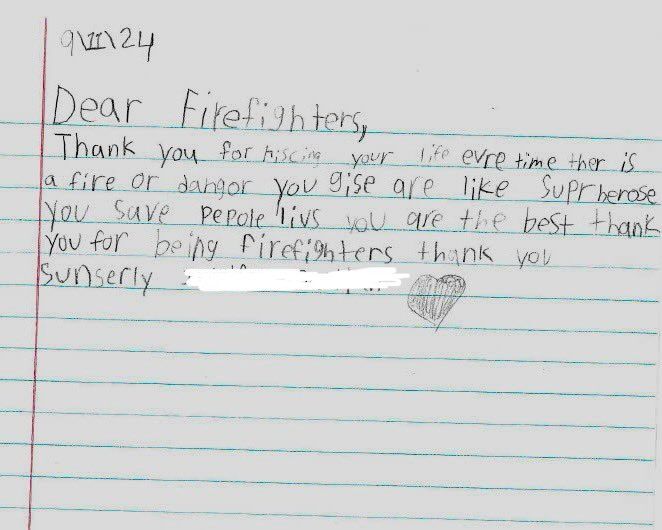 9\11\24
Dear Firefighters,
Thank you for riscing your life evre time ther is
a fire or dangor you gise are like Suprherose
You save Pepole livs you are the best thank
you for being firefighters thank you
Sunserly